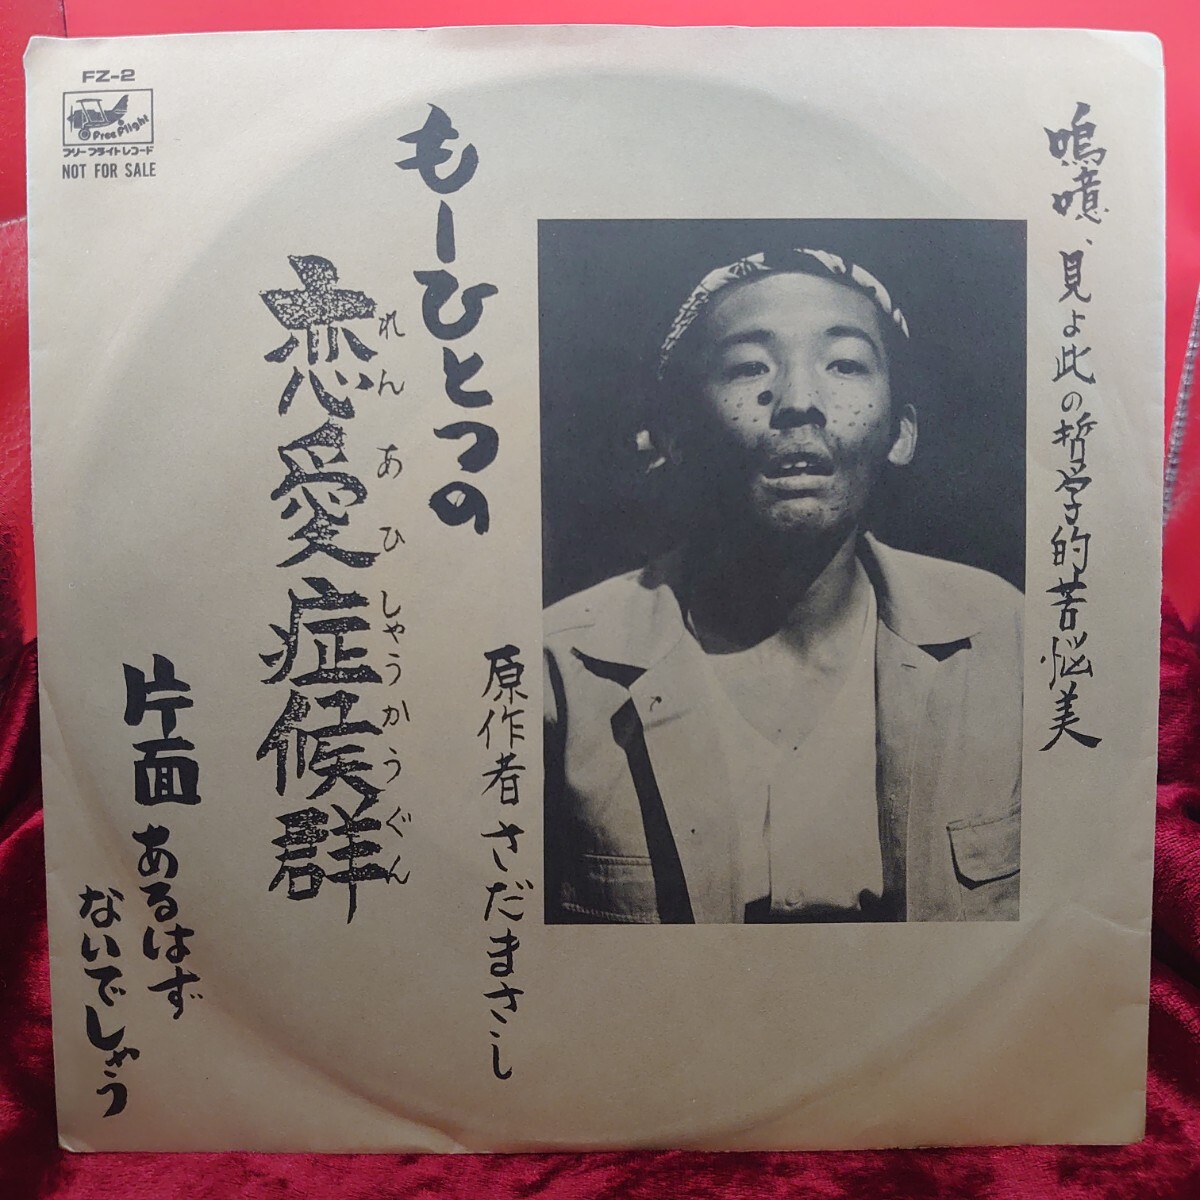 FZ-2
Free Flight
フリーフライトレコード
NOT FOR SALE
嗚噫、見よ此の哲学的苦悩美
もーひとつの
恋愛症候群
れんあひしゃうかうぐん
原作者 さだまさし
片面 あるはず
ないでしゃう